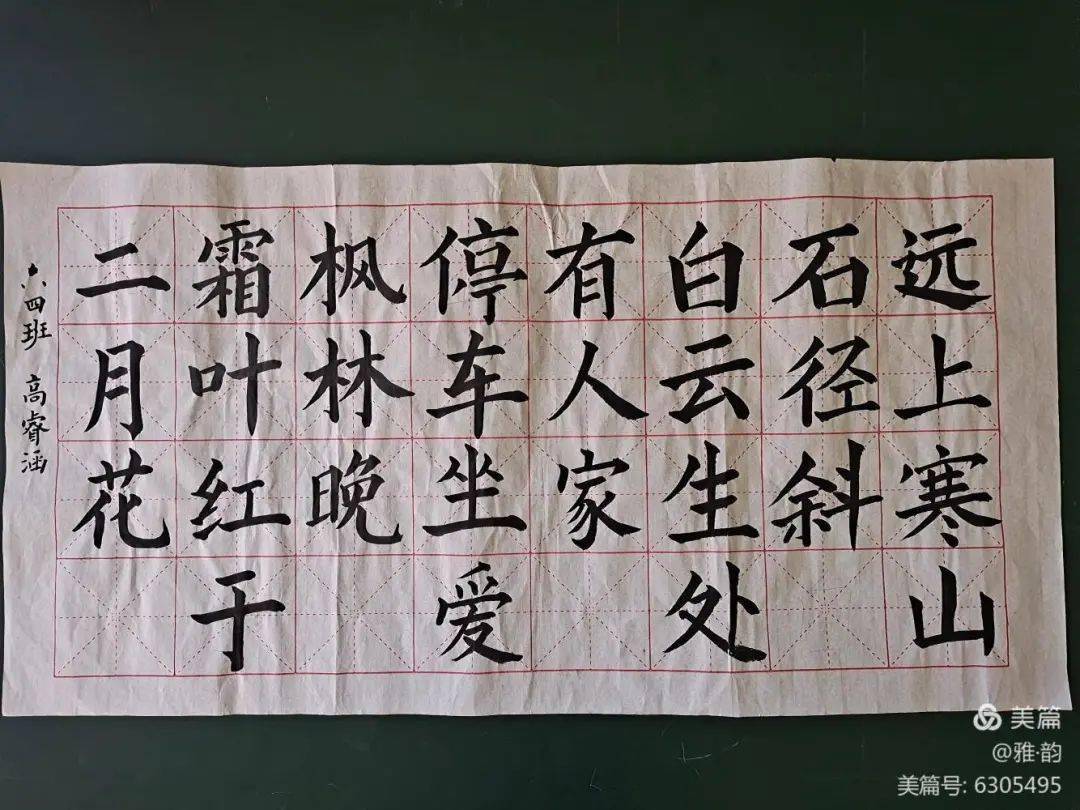 远上寒山
石径斜
白云生处
有人家
停车坐爱
枫林晚
霜叶红于
二月花
六四班 高睿涵
美篇
@雅·韵
美篇号: 6305495